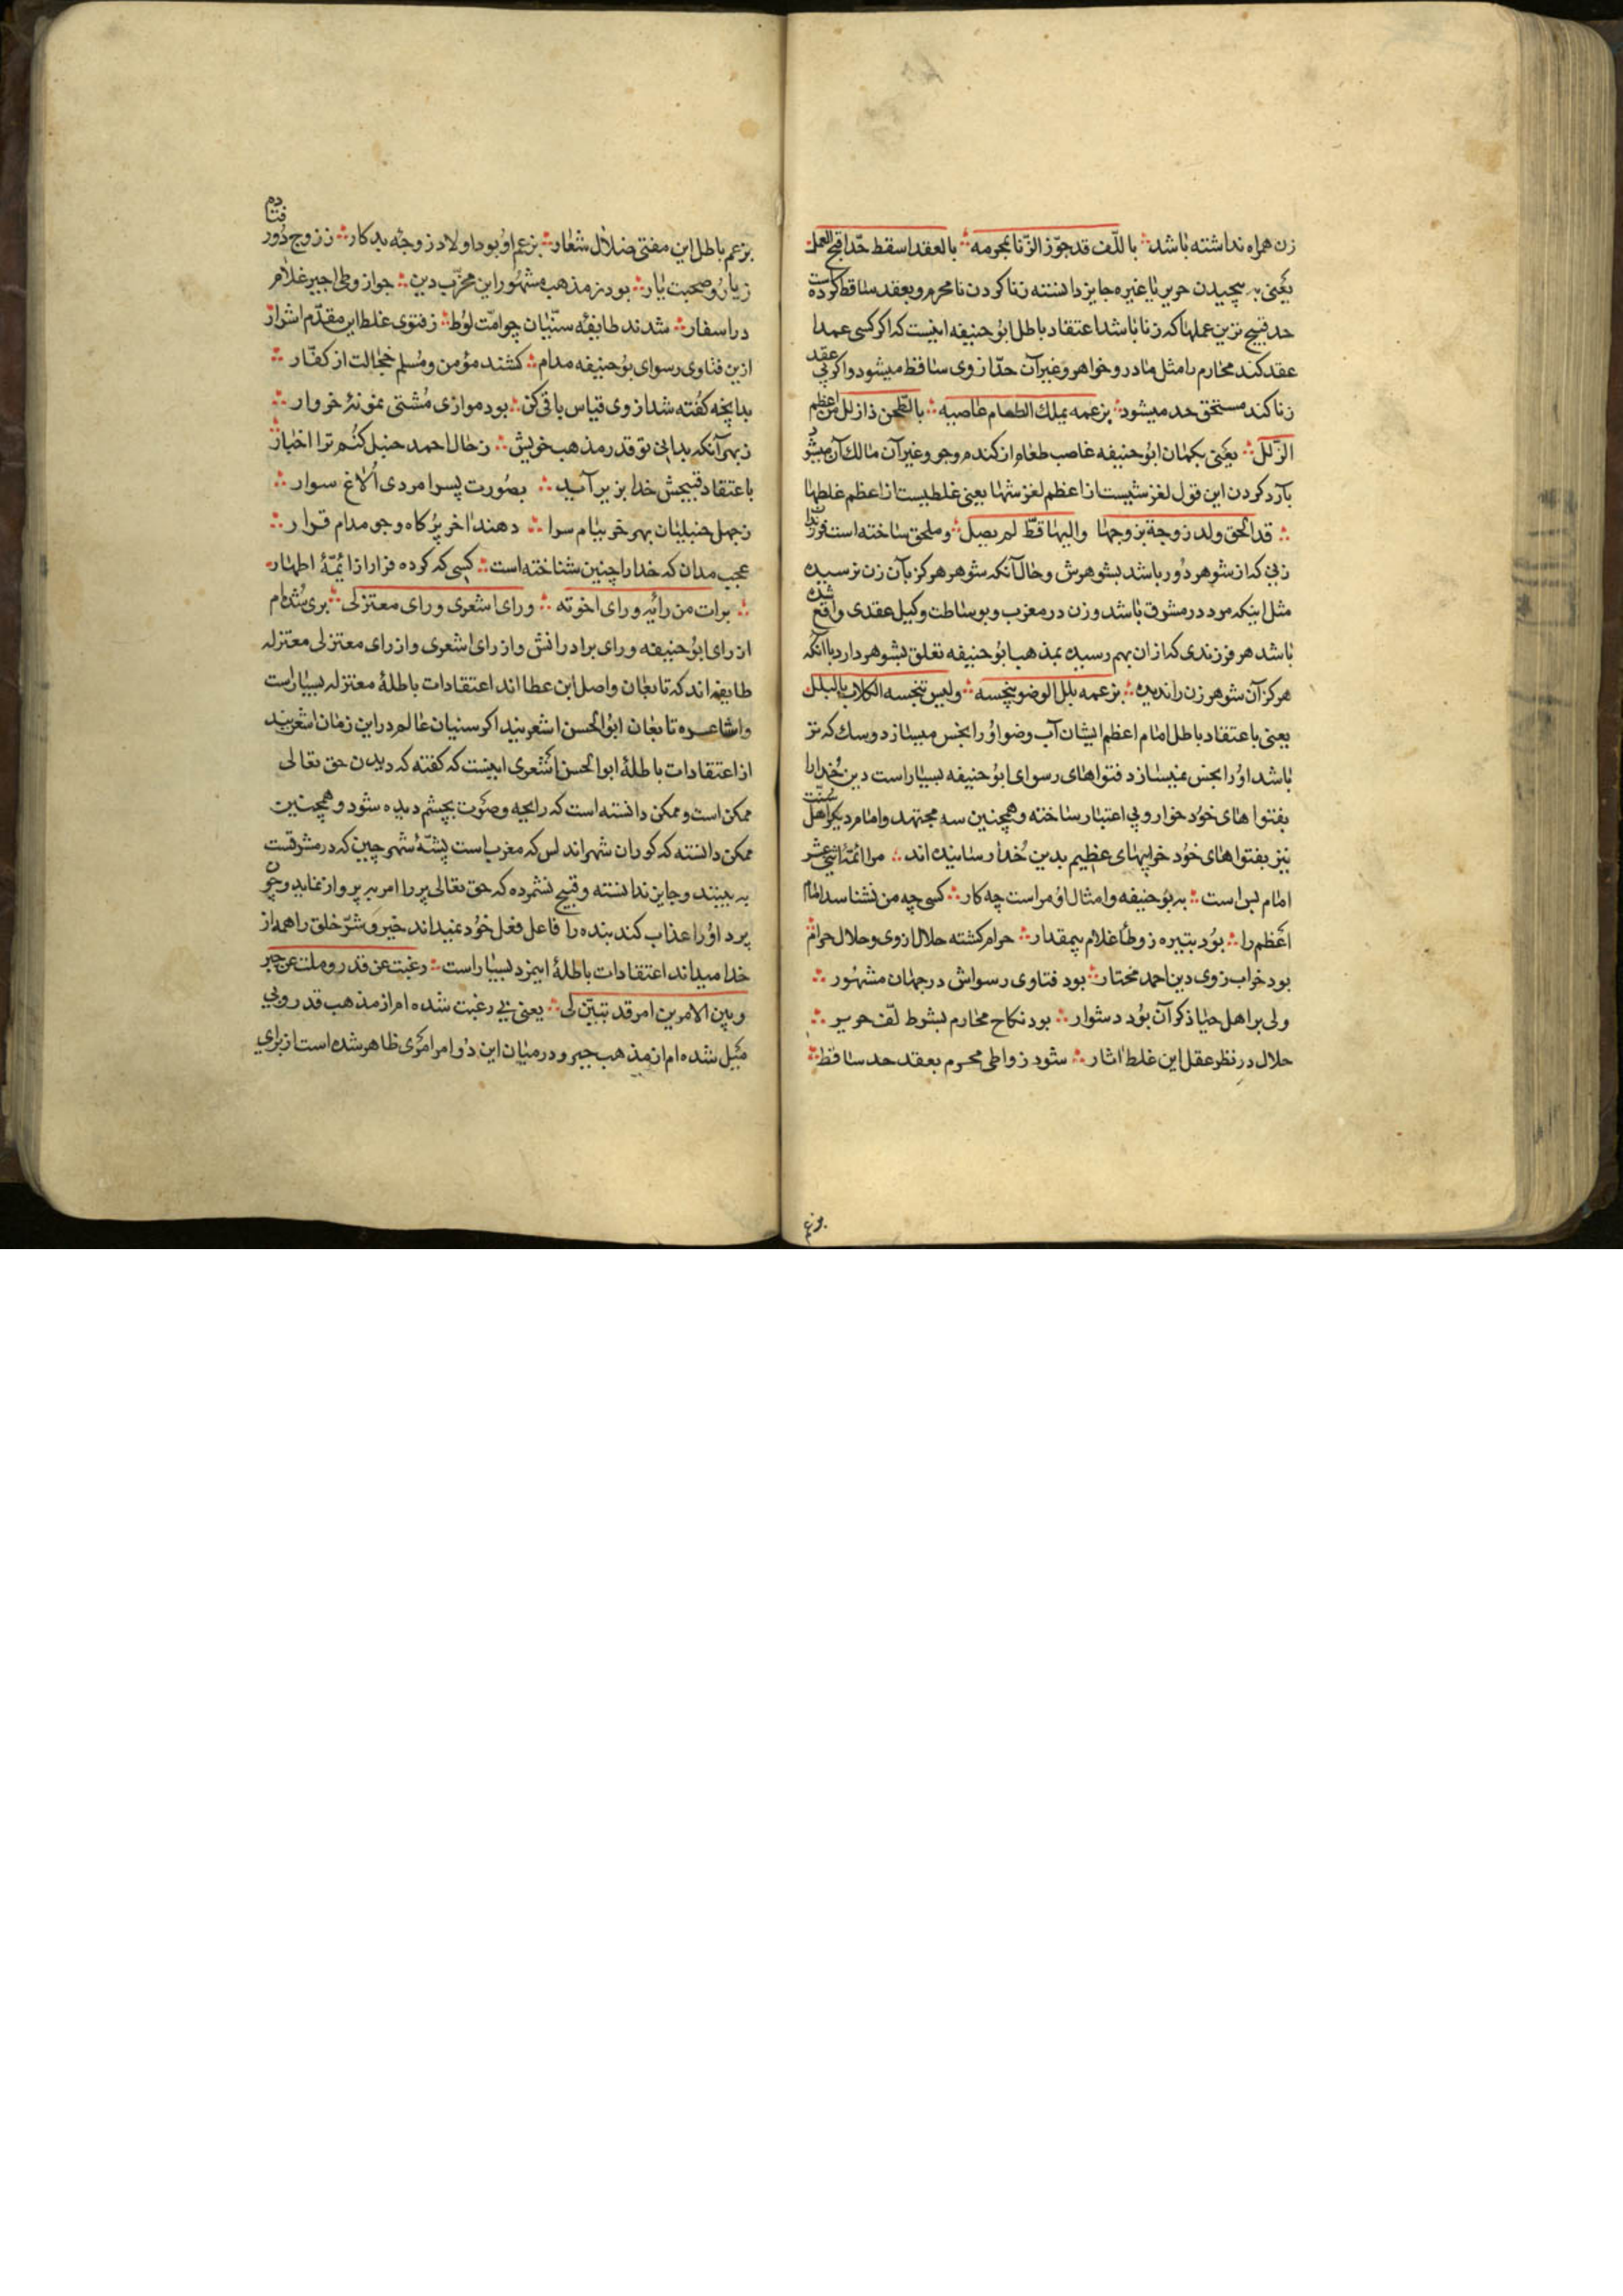 زن همراه نداشته باشد ∴ باللّف قد جوّز الزّنا بمحرمه ∴ بالعقد اسقط حدّ اقبح العمل
یعنی به پیچیدن حریر یا غیره جایز دانسته زنا کردن با محرم و بعقد ساقط کرده است
حد قبیح ترین عملها که زنا باشد اعتقاد باطل ابوحنیفه اینست که اکر کسی عمدا
عقد کند محارم را مثل مادر و خواهر و غیر آن حدّ از وی ساقط میشود و اکر بی عقد
زنا کند مستحق حد میشود ∴ بزعمه یملك الطعام غاصبه ∴ بالطّحن ذا زلل من اعظم
الزّلل ∴ یعنی بکمان ابوحنیفه غاصب طعام از کندم و جو و غیر آن مالك آن میشود
بآرد کردن این قول لغزشیست از اعظم لغزشها یعنی غلطیست از اعظم غلطها
∴ قد الحق ولد زوجة بزوجها والیها قطّ لم یصل ∴ و ملحق ساخته است فرزند
زنی که از شوهر دور باشد بشوهرش و حال آنکه شوهر هرکز بآن زن نرسیده
مثل اینکه مرد در مشرق باشد و زن در مغرب و بوساطت وکیل عقدی واقع شده
باشد هر فرزندی که از ان بهم رسیده بمذهب ابوحنیفه تعلق بشوهر دارد با آنکه
هرکز آن شوهر زن را ندیده ∴ بزعمه بلل الوضو ینجسه ∴ ولیس تنجسه الکلاب بالبلل
یعنی باعتقاد باطل امام اعظم ایشان آب وضو او را نجس میسازد و سك که تر
باشد او را نجس نمیسازد فتواهای رسوای ابوحنیفه بسیار است دین خدا را
بفتواهای خود خوار و بی اعتبار ساخته و همچنین سه مجتهد و امام دیکر اهل سنّت
نیز بفتواهای خود خرابیهای عظیم بدین خدا رسانیده اند ∴ مرا ائمّه اثنی عشر
امام بس است ∴ به بوحنیفه و امثال او مراست چه کار ∴ کسی چه من نشناسد امام
اعظم را ∴ بود بتیره ز وطأ غلام بیمقدار ∴ حرام کشته حلال از وی و حلال حرام ∴
بود خراب ز وی دین احمد مختار ∴ بود فتاوی رسواش در جهان مشهور ∴
ولی بر اهل حیا ذکر آن بود دشوار ∴ بود نکاح محارم بشرط لفّ حریر ∴
حلال در نظر عقل این غلط اثار ∴ شود ز واطی محرم بعقد حد ساقط ∴
بزعم
بزعم باطل این مفتی ضلال شعار ∴ بزعم او بود اولاد زوجه بدکار ∴ ز زوج دور فتاده
ز یار و صحبت یار ∴ بود ز مذهب مشهور این مخرّب دین ∴ جواز وطی اجیر غلام
در اسفار ∴ شدند طایفه سنّیان چو امّت لوط ∴ ز فتوی غلط این مقدّم اشرار
ازین فتاوی رسوای بوحنیفه مدام ∴ کشند مؤمن و مسلم خجالت از کفّار ∴
بدانچه کفته شد از وی قیاس باقی کن ∴ بود موازی مشتی نمونهٔ خروار ∴
ز بهر آنکه بدانی تو قدر مذهب خویش ∴ ز حال احمد حنبل کنم ترا اخبار ∴
باعتقاد قبیحش خدا بزیر آید ∴ بصورت پسر امردی الاغ سوار ∴
ز جهل حنبلیان بهر خر ببام سرا ∴ دهند اخر پر کاه و جو مدام قرار ∴
عجب مدان که خدا را چنین شناخته است ∴ کسی که کرده فرار از ائمّهٔ اطهار ∴
∴ برات من رایه و رای اخوته ∴ و رای اشعری و رای معتزلی ∴ بری شده ام
از رای ابوحنیفه و رای برادرانش و از رای اشعری و از رای معتزلی معتزله
طایفه اند که تابعان واصل ابن عطا اند اعتقادات باطلهٔ معتزله بسیار است
و اشاعره تابعان ابوالحسن اشعریند اکر سنیان عالم در این زمان اشعریند
از اعتقادات باطلهٔ ابوالحسن اشعری اینست که کفته که دیدن حق تعالی
ممکن است و ممکن دانسته است که رایحه و صوت بچشم دیده شود و همچنین
ممکن دانسته که کوران شهر اندلس که مغرب است پشّهٔ شهر چین که در مشرقست
به بینند و جایز دانسته و قبیح نشمرده که حق تعالی پر را امر به پرواز نماید و چون
پرد او را عذاب کند بنده را فاعل فعل خود نمیداند خیر و شرّ خلق را همه از
خدا میداند اعتقادات باطلهٔ اینمرد بسیار است ∴ رغبت عن قدر و ملت عن جبر
و بین الامرین امر قد تبیّن لی ∴ یعنی بی رغبت شده ام از مذهب قدر و بی
میل شده ام از مذهب جبر و در میان این دو امر امری ظاهر شده است از برای